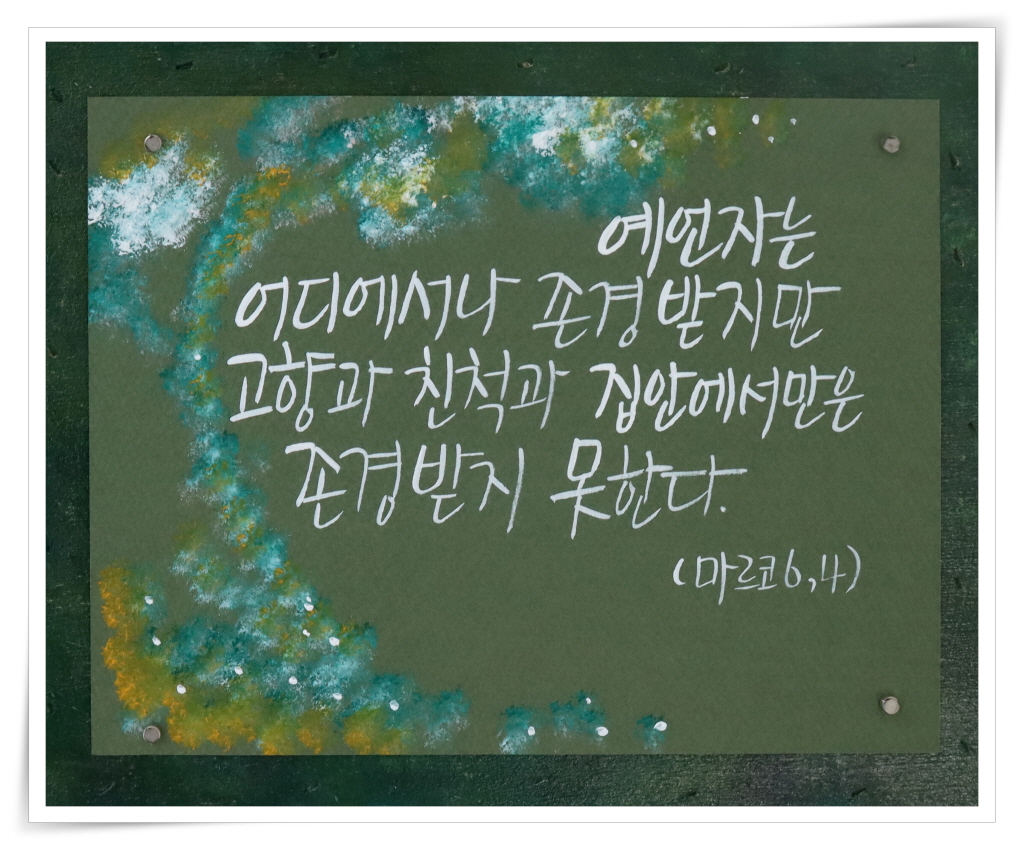 예언자는
어디에서나 존경받지만
고향과 친척과 집안에서만은
존경받지 못한다.
(마르코 6,4)